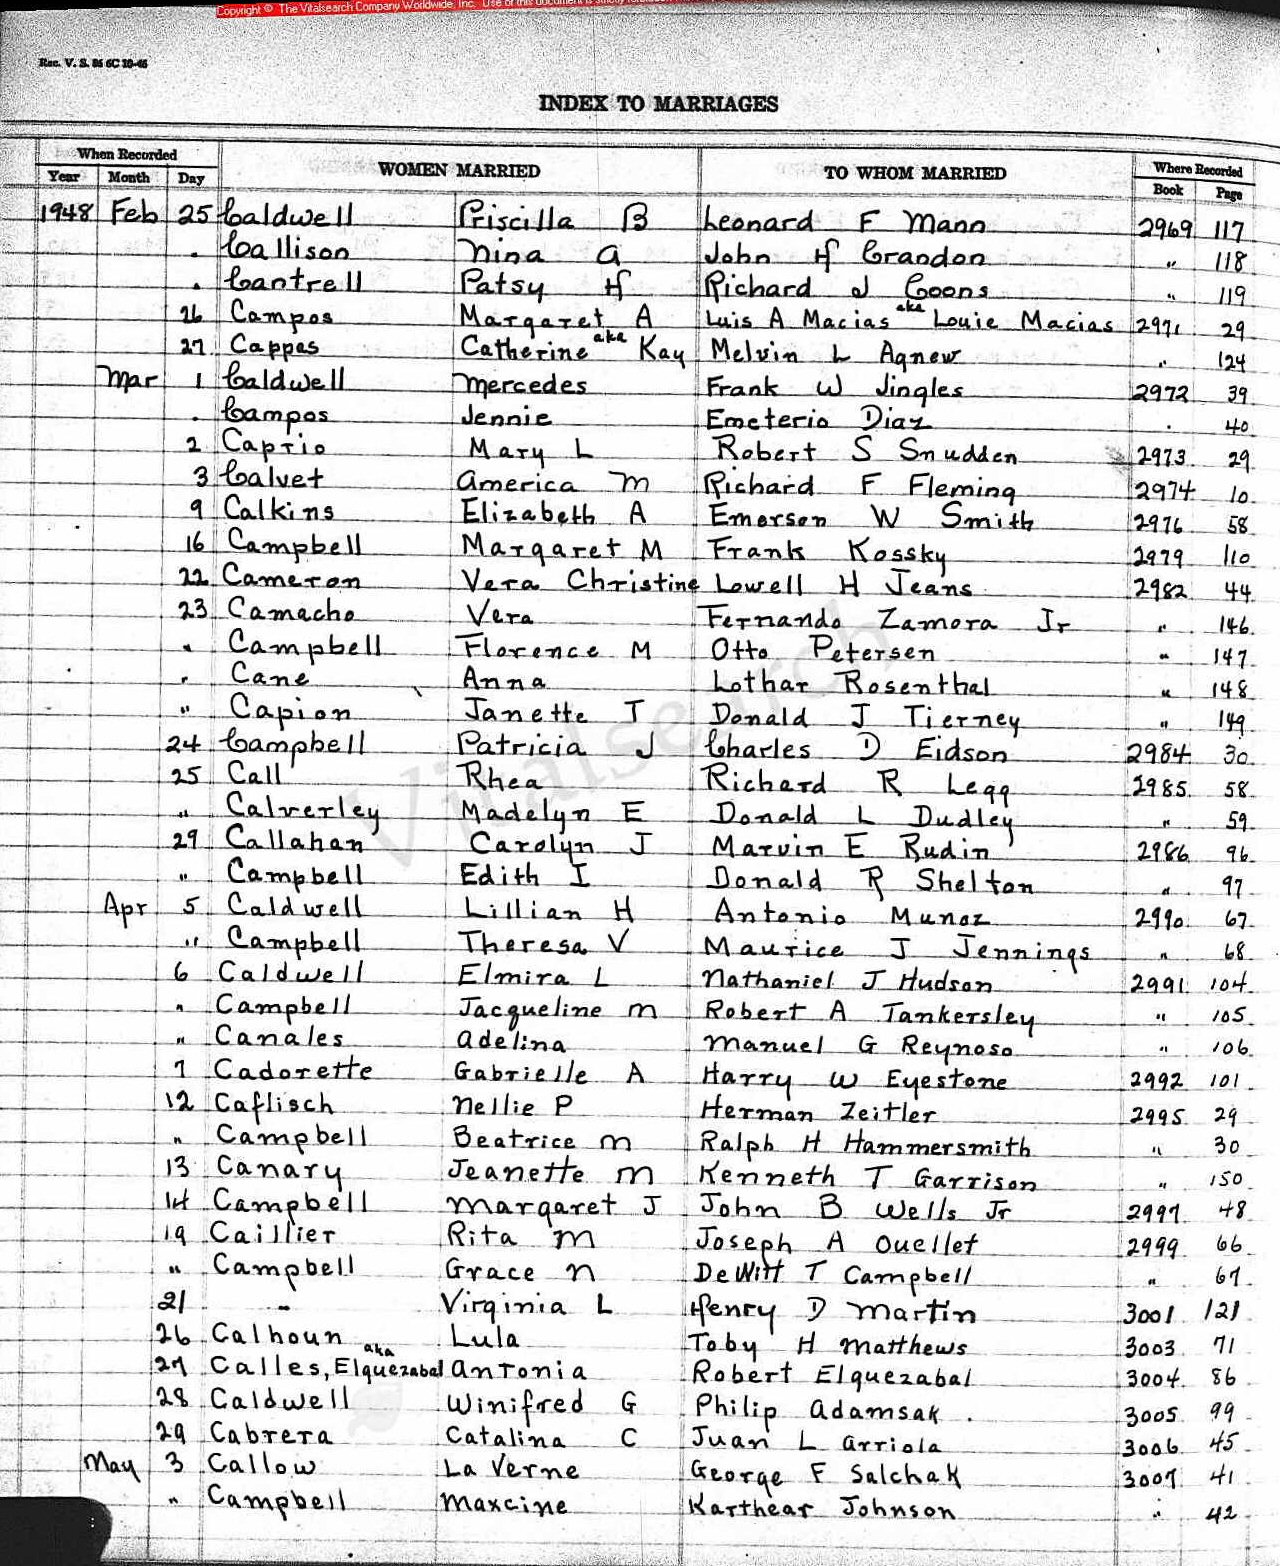 Copyright © The Vitalsearch Company Worldwide, Inc. Use of this document is strictly
Rec. V. S. 86 6C 10-46
INDEX TO MARRIAGES
When Recorded WOMEN MARRIED TO WHOM MARRIED Where Recorded
Year Month Day Book Page
1948 Feb 25 Caldwell Priscilla B Leonard F Mann 2969 117
. Callison Nina A John H Crandon " 118
. Cantrell Patsy H Richard J Coons " 119
26 Campos Margaret A Luis A Macias aka Louie Macias 2971 29
27 Cappas Catherine aka Kay Melvin L Agnew " 124
Mar 1 Caldwell Mercedes Frank W Jingles 2972 39
. Campos Jennie Emeterio Diaz . 40
2 Caprio Mary L Robert S Snudden 2973 29
3 Calvet America M Richard F Fleming 2974 10
9 Calkins Elizabeth A Emerson W Smith 2976 58
16 Campbell Margaret M Frank Kossky 2979 110
22 Cameron Vera Christine Lowell H Jeans 2982 44
23 Camacho Vera Fernando Zamora Jr " 146
" Campbell Florence M Otto Petersen " 147
" Cane Anna Lothar Rosenthal " 148
" Capion Janette T Donald J Tierney " 149
24 Campbell Patricia J Charles D Eidson 2984 30
25 Call Rhea Richard R Legg 2985 58
" Calverley Madelyn E Donald L Dudley " 59
29 Callahan Carolyn J Marvin E Rudin 2986 96
" Campbell Edith I Donald R Shelton " 97
Apr 5 Caldwell Lillian H Antonio Munoz 2990 67
" Campbell Theresa V Maurice J Jennings " 68
6 Caldwell Elmira L Nathaniel J Hudson 2991 104
" Campbell Jacqueline M Robert A Tankersley " 105
" Canales Adelina Manuel G Reynoso " 106
7 Cadorette Gabrielle A Harry W Eyestone 2992 101
12 Caflisch Nellie P Herman Zeitler 2995 29
" Campbell Beatrice M Ralph H Hammersmith " 30
13 Canary Jeanette M Kenneth T Garrison " 150
14 Campbell Margaret J John B Wells Jr 2997 48
19 Caillier Rita M Joseph A Ouellet 2999 66
" Campbell Grace N DeWitt T Campbell " 67
21 " Virginia L Henry D Martin 3001 121
26 Calhoun Lula Toby H Matthews 3003 71
27 Calles, aka Elquezabal Antonia Robert Elquezabal 3004 86
28 Caldwell Winifred G Philip Adamsak 3005 99
29 Cabrera Catalina C Juan L Arriola 3006 45
May 3 Callow La Verne George F Salchak 3007 41
" Campbell Maxcine Karthear Johnson " 42
Vitalsearch